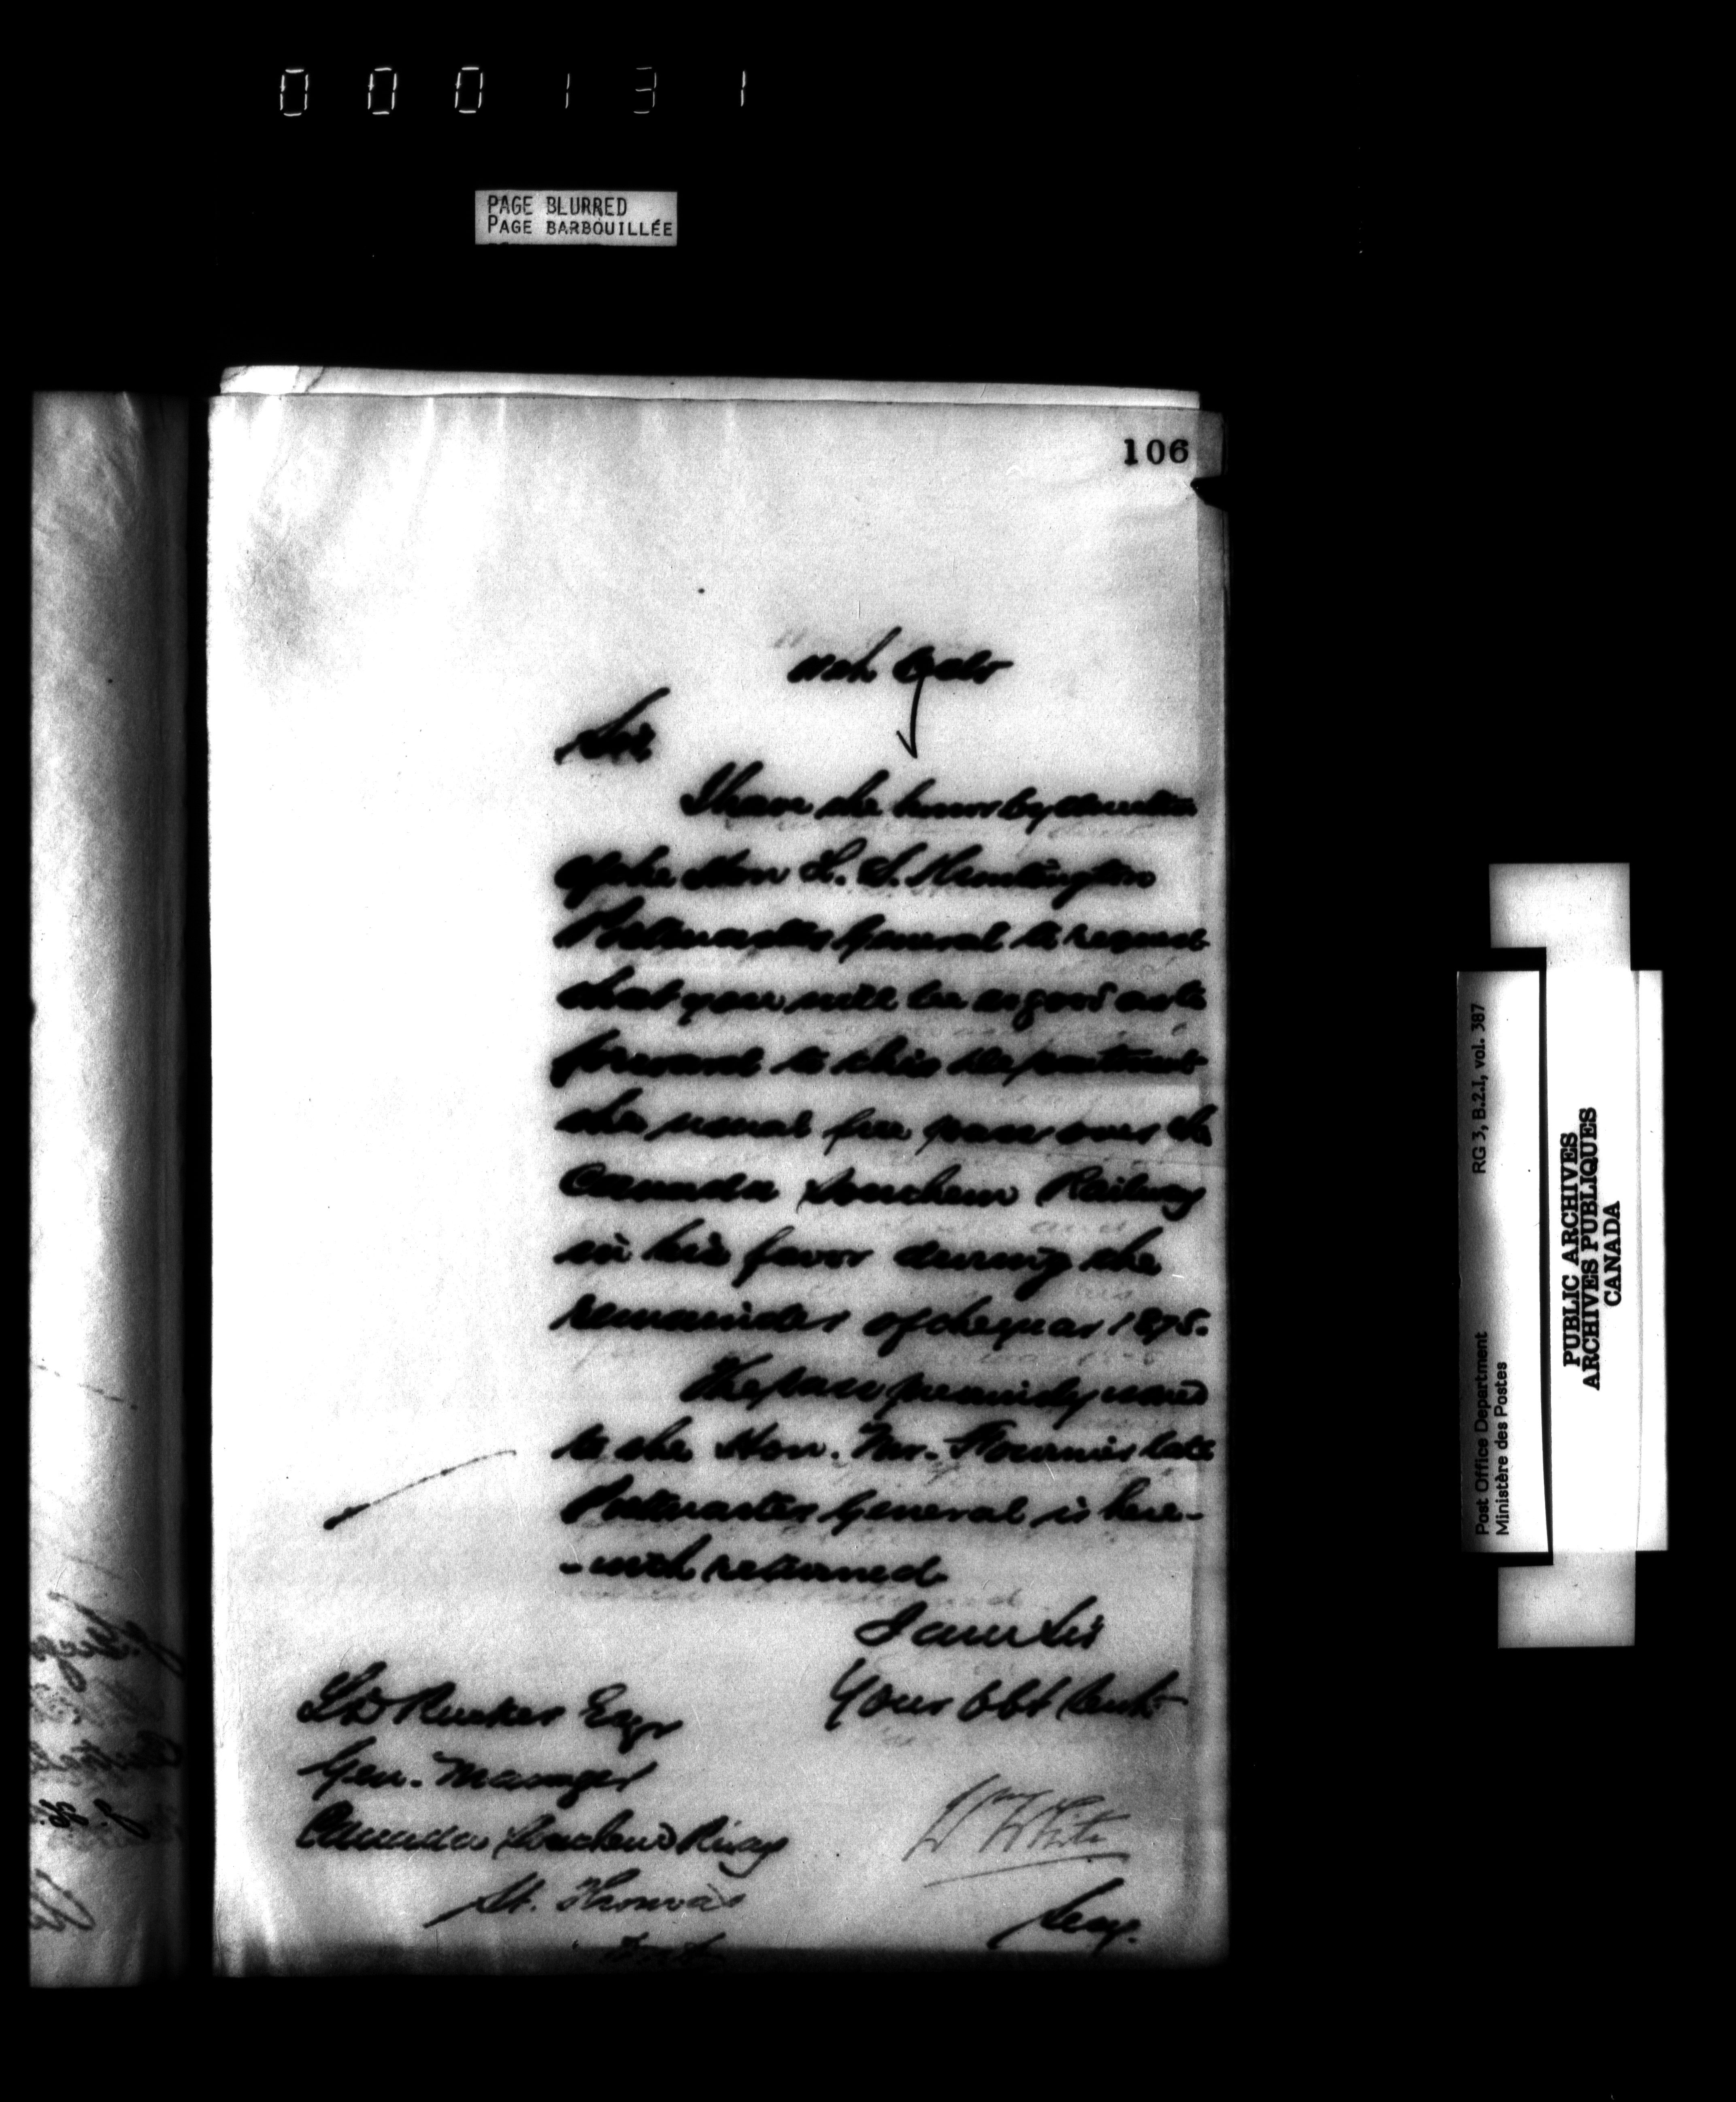 000131
PAGE BLURRED
PAGE BARBOUILLÉE
106
11th Octr
Sir
I have the honor by direction
of the Hon L. S. Huntington
Postmaster General to request
that you will be so good as to
forward to this Department
the usual free pass over the
Canada Southern Railway
in his favor during the
remainder of the year 1875.
The pass previously issued
to the Hon. Mr. Fournier late
Postmaster General is here-
-with returned
I am Sir
Your Obt Servt
Wm White
Secy.
Rucker Esqr
Gen. Manager
Canada Southern Rlway
St. Thomas
Ont
RG 3, B.2.I, vol. 387
Post Office Department
Ministère des Postes
PUBLIC ARCHIVES
ARCHIVES PUBLIQUES
CANADA